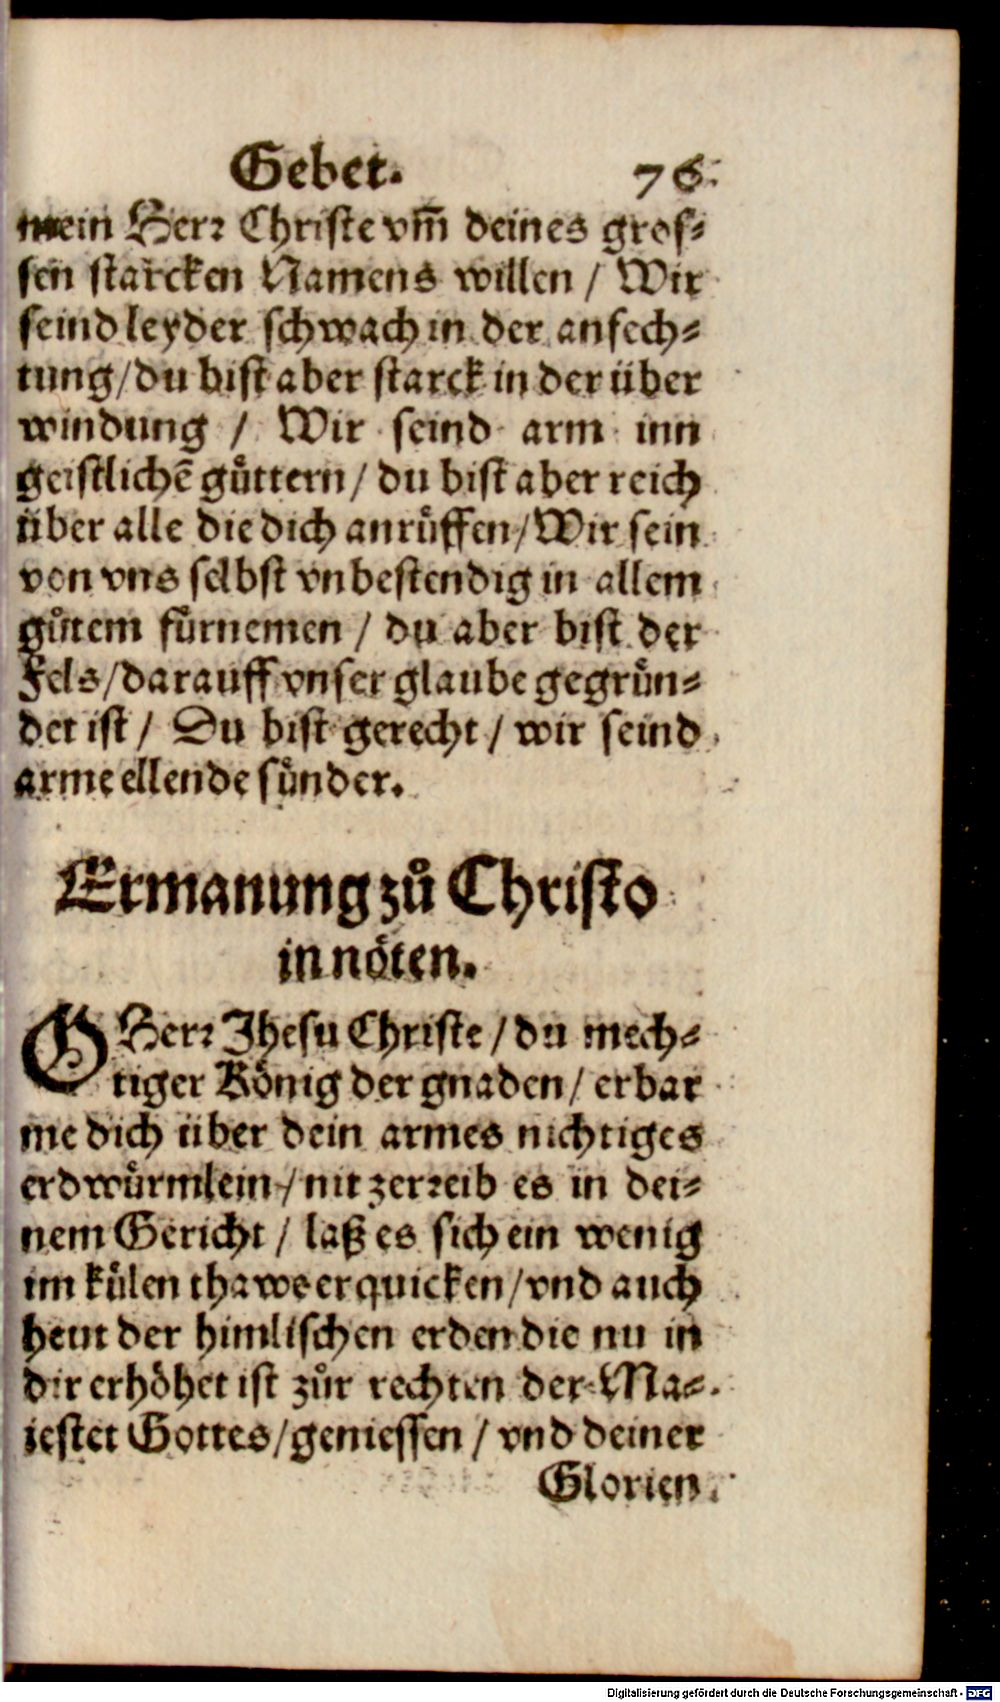 Gebet. 76.
mein Herr Christe vm̃ deines gros-
sen starcken Namens willen / Wir
seind leyder schwach in der anfech-
tung / du bist aber starck in der über
windung / Wir seind arm inn
geistlichẽ guͤttern / du bist aber reich
über alle die dich anruͤffen / Wir sein
von vns selbst vnbestendig in allem
guͦtem fuͤrnemen / du aber bist der
Fels / darauff vnser glaube gegruͤn-
det ist / Du bist gerecht / wir seind
arme ellende suͤnder.
Ermanung zuͦ Christo
in noͤten.
O Herr Jhesu Christe / du mech-
tiger Koͤnig der gnaden / erbar
me dich über dein armes nichtiges
erdwuͤrmlein / nit zerreib es in dei-
nem Gericht / laß es sich ein wenig
im kuͤlen thawe erquicken / vnd auch
heut der himlischen erden die nu in
dir erhoͤhet ist zuͦr rechten der Ma-
iestet Gottes / geniessen / vnd deiner
Glorien
Digitalisierung gefördert durch die Deutsche Forschungsgemeinschaft - DFG